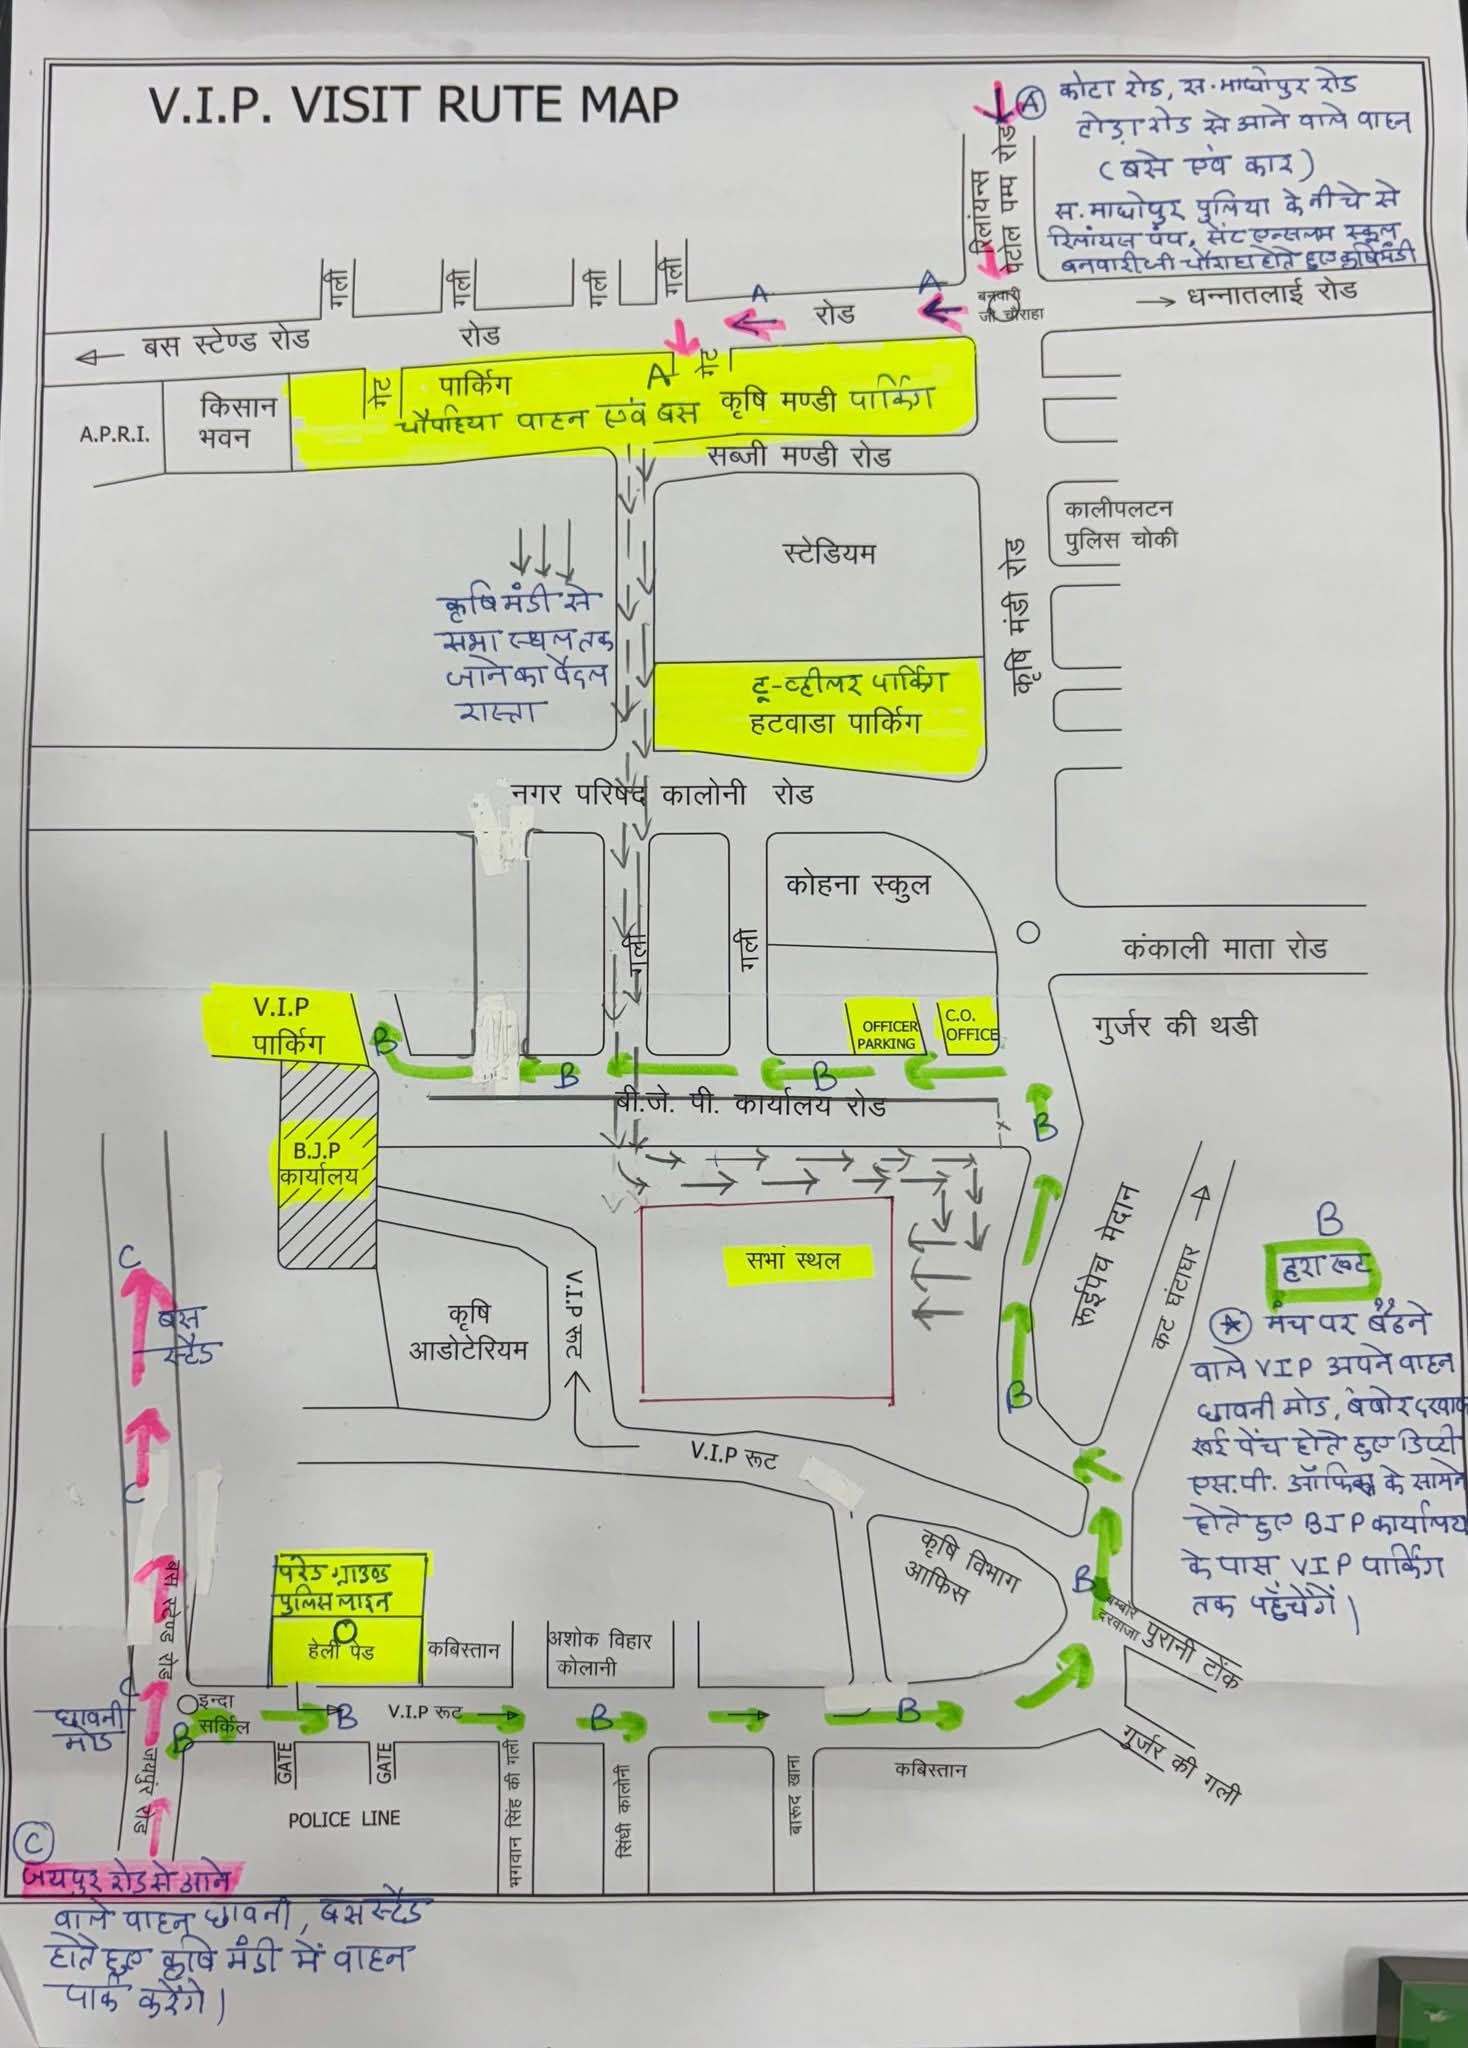 V.I.P. VISIT RUTE MAP
A
कोटा रोड, स.माधोपुर रोड
टोड़ा रोड से आने वाले वाहन
(बसे एवं कार)
स.माधोपुर पुलिया के नीचे से
रिलांयस पंप, सेंट एन्सलम स्कूल
बनवारीजी चौराहा होते हुए कृषि मंडी
रिलांयन्स
पेटोल पम्प रोड
गली
गली
गली
गली
A
A
← बस स्टेण्ड रोड
रोड
रोड
बनवारी
जी चौराहा
→ धन्नातलाई रोड
A.P.R.I.
किसान
भवन
गेट
पार्किग
A
गेट
चौपहिया वाहन एवं बस
कृषि मण्डी पार्किग
सब्जी मण्डी रोड
स्टेडियम
कालीपलटन
पुलिस चोकी
कृषि मंडी रोड
कृषि मंडी से
सभा स्थल तक
जाने का पैदल
रास्ता
टू-व्हीलर पार्किग
हटवाडा पार्किग
नगर परिषद कालोनी रोड
गली
गली
कोहना स्कुल
कंकाली माता रोड
गुर्जर की थडी
V.I.P
पार्किग
OFFICER
PARKING
C.O.
OFFICE
B
B
B
B
बी.जे. पी. कार्यालय रोड
B.J.P
कार्यालय
सभा स्थल
कृषि
आडोटेरियम
V.I.P रूट
V.I.P रूट
रूईपेच मेदान
कट घंटाघर →
B
B
हरा रूट
मंच पर बैठने
वाले VIP अपने वाहन
छावनी मोड, बंबोर दरवाजा
रूई पेंच होते हुए डिप्टी
एस.पी. ऑफिस के सामने
होते हुए BJP कार्यालय
के पास VIP पार्किग
तक पहुँचेंगें।
C
बस
स्टैंड
C
बस स्टेण्ड रोड
परेड ग्राउण्ड
पुलिस लाइन
हेली पेड
कबिस्तान
अशोक विहार
कोलानी
कृषि विभाग
आफिस
B
बम्बोर
दरवाजा
पुरानी टोंक
गुर्जर की गली
C
छावनी
मोड
इन्दा
सर्किल
B
B
V.I.P रूट
B
B
जयपुर रोड
GATE
GATE
POLICE LINE
भगवान सिंह की गली
सिंघी कालोनी
बारूद खाना
कबिस्तान
C
जयपुर रोड से आने
वाले वाहन छावनी, बस स्टैंड
होते हुए कृषि मंडी में वाहन
पार्क करेंगे।